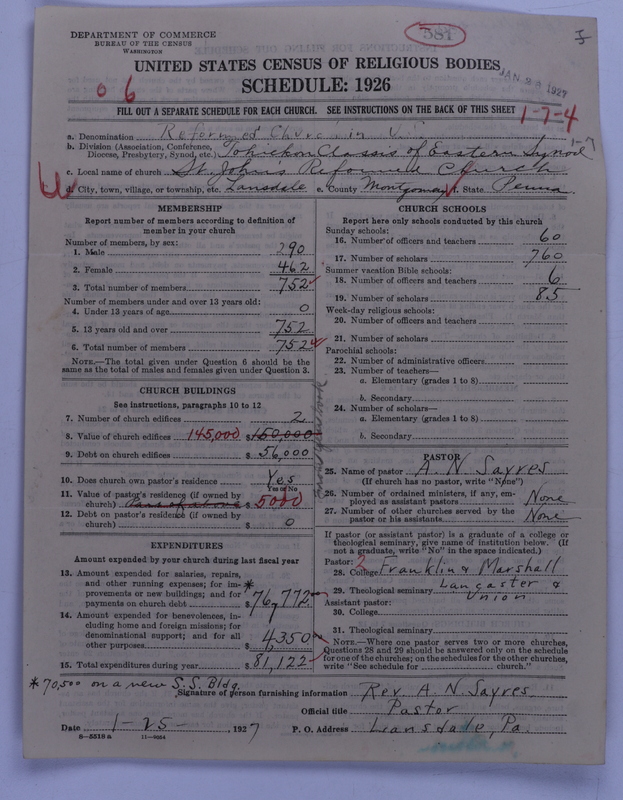 DEPARTMENT OF COMMERCE
BUREAU OF THE CENSUS
WASHINGTON
581
UNITED STATES CENSUS OF RELIGIOUS BODIES
JAN 28 1927
SCHEDULE: 1926
06
FILL OUT A SEPARATE SCHEDULE FOR EACH CHURCH. SEE INSTRUCTIONS ON THE BACK OF THIS SHEET
1-7-4
a. Denomination Reformed Church in U.S.
b. Division (Association, Conference, Diocese, Presbytery, Synod, etc.) Tohickon Classis of Eastern Synod 1-7
c. Local name of church St. Johns Reformed Church
d. City, town, village, or township, etc. Lansdale e. County Montgomery f. State Penna.
MEMBERSHIP
Report number of members according to definition of member in your church
Number of members, by sex:
1. Male 290
2. Female 462
3. Total number of members 752
Number of members under and over 13 years old:
4. Under 13 years of age 0
5. 13 years old and over 752
6. Total number of members 752
NOTE.—The total given under Question 6 should be the same as the total of males and females given under Question 3.
CHURCH BUILDINGS
See instructions, paragraphs 10 to 12
7. Number of church edifices 2
8. Value of church edifices 145,000 $150,000
9. Debt on church edifices $56,000
10. Does church own pastor's residence? Yes
Yes or No
11. Value of pastor's residence (if owned by church) $5000
12. Debt on pastor's residence (if owned by church) $0
EXPENDITURES
Amount expended by your church during last fiscal year
13. Amount expended for salaries, repairs, and other running expenses; for improvements or new buildings; and for payments on church debt * $76,772
14. Amount expended for benevolences, including home and foreign missions; for denominational support; and for all other purposes $4350
15. Total expenditures during year $81,122
CHURCH SCHOOLS
Report here only schools conducted by this church
Sunday schools:
16. Number of officers and teachers 60
17. Number of scholars 760
Summer vacation Bible schools:
18. Number of officers and teachers 6
19. Number of scholars 85
Week-day religious schools:
20. Number of officers and teachers
21. Number of scholars
Parochial schools:
22. Number of administrative officers
23. Number of teachers—
a. Elementary (grades 1 to 8)
b. Secondary
24. Number of scholars—
a. Elementary (grades 1 to 8)
b. Secondary
PASTOR
25. Name of pastor A. N. Sayres
(If church has no pastor, write "None")
26. Number of ordained ministers, if any, employed as assistant pastors None
27. Number of other churches served by the pastor or his assistants None
If pastor (or assistant pastor) is a graduate of a college or theological seminary, give name of institution below. (If not a graduate, write "No" in the space indicated.)
Pastor:
28. College Franklin & Marshall
29. Theological seminary Lancaster & Union
Assistant pastor:
30. College
31. Theological seminary
NOTE.—Where one pastor serves two or more churches, Questions 28 and 29 should be answered only on the schedule for one of the churches; on the schedules for the other churches, write "See schedule for church."
*70,500 on a new S.S. Bldg.
Signature of person furnishing information Rev. A. N. Sayres
Official title Pastor
Date 1-25-, 1927 P. O. Address Lansdale, Pa.
8—5518 a 11—9054